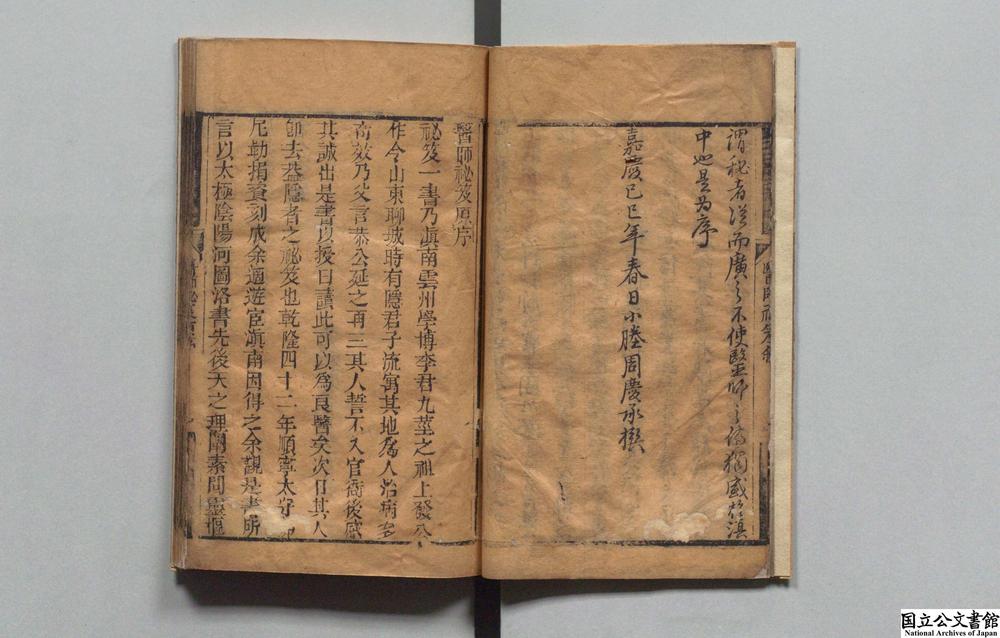 謂秘者從而廣之不使醫師之傳獨盛於滇
中也是为序
嘉慶己巳年春日小塍周慶承撰
醫師秘笈原序
祕笈一書乃滇南雲州學博李君九莖之祖上發公
作令山東聊城時有隱君子流寓其地為人治病多
奇效乃父言恭公延之再三其人誓不入官衙後感
其誠出是書以授曰讀此可以為良醫矣次日其人
即去葢隱者之祕笈也乾隆四十二年順寧太守
捐資刻成余適遊宦滇南因得之余觀是書所
言以太極陰陽河圖洛書先後天之理闡素問靈樞
国立公文書館
National Archives of Japan